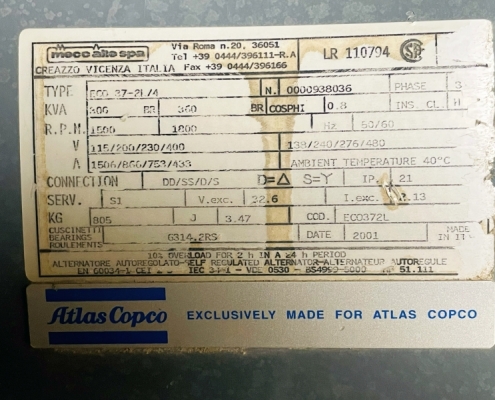 mecc alte spa Via Roma n.20, 36051
Tel +39 0444/396111-R.A LR 110794
CREAZZO VICENZA ITALIA Fax +39 0444/396166
TYPE ECO 37-2L/4 N. 0000938036 PHASE 3
KVA 300 BR 360 BR COSPHI 0.8 INS. CL H
R.P.M. 1500 1800 Hz 50/60
V 115/200/230/400 138/240/276/480
A 1506/866/753/433 AMBIENT TEMPERATURE 40°C
CONNECTION DD/SS/D/S D=△ S=Y IP. 21
SERV. S1 V.exc. 32.6 I.exc. .13
KG 805 J 3.47 COD. ECO372L
CUSCINETTI
BEARINGS 6314.2RS DATE 2001 MADE
ROULEMENTS IN IT
10% OVERLOAD FOR 2 h IN A 24 h PERIOD
ALTERNATORE AUTOREGOLATO-SELF REGULATED ALTERNATOR-ALTERNATEUR AUTOREGULE
EN 60034-1 CEI IEC 34-1 - VDE 0530 - BS4999-5000 51.111
Atlas Copco EXCLUSIVELY MADE FOR ATLAS COPCO